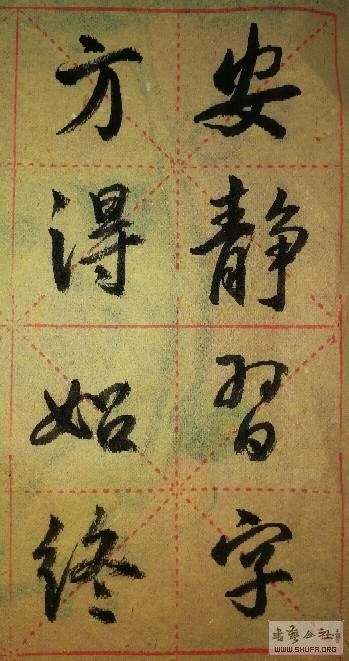 安静習字
方得始终
書藝公社
WWW.SHUFA.ORG